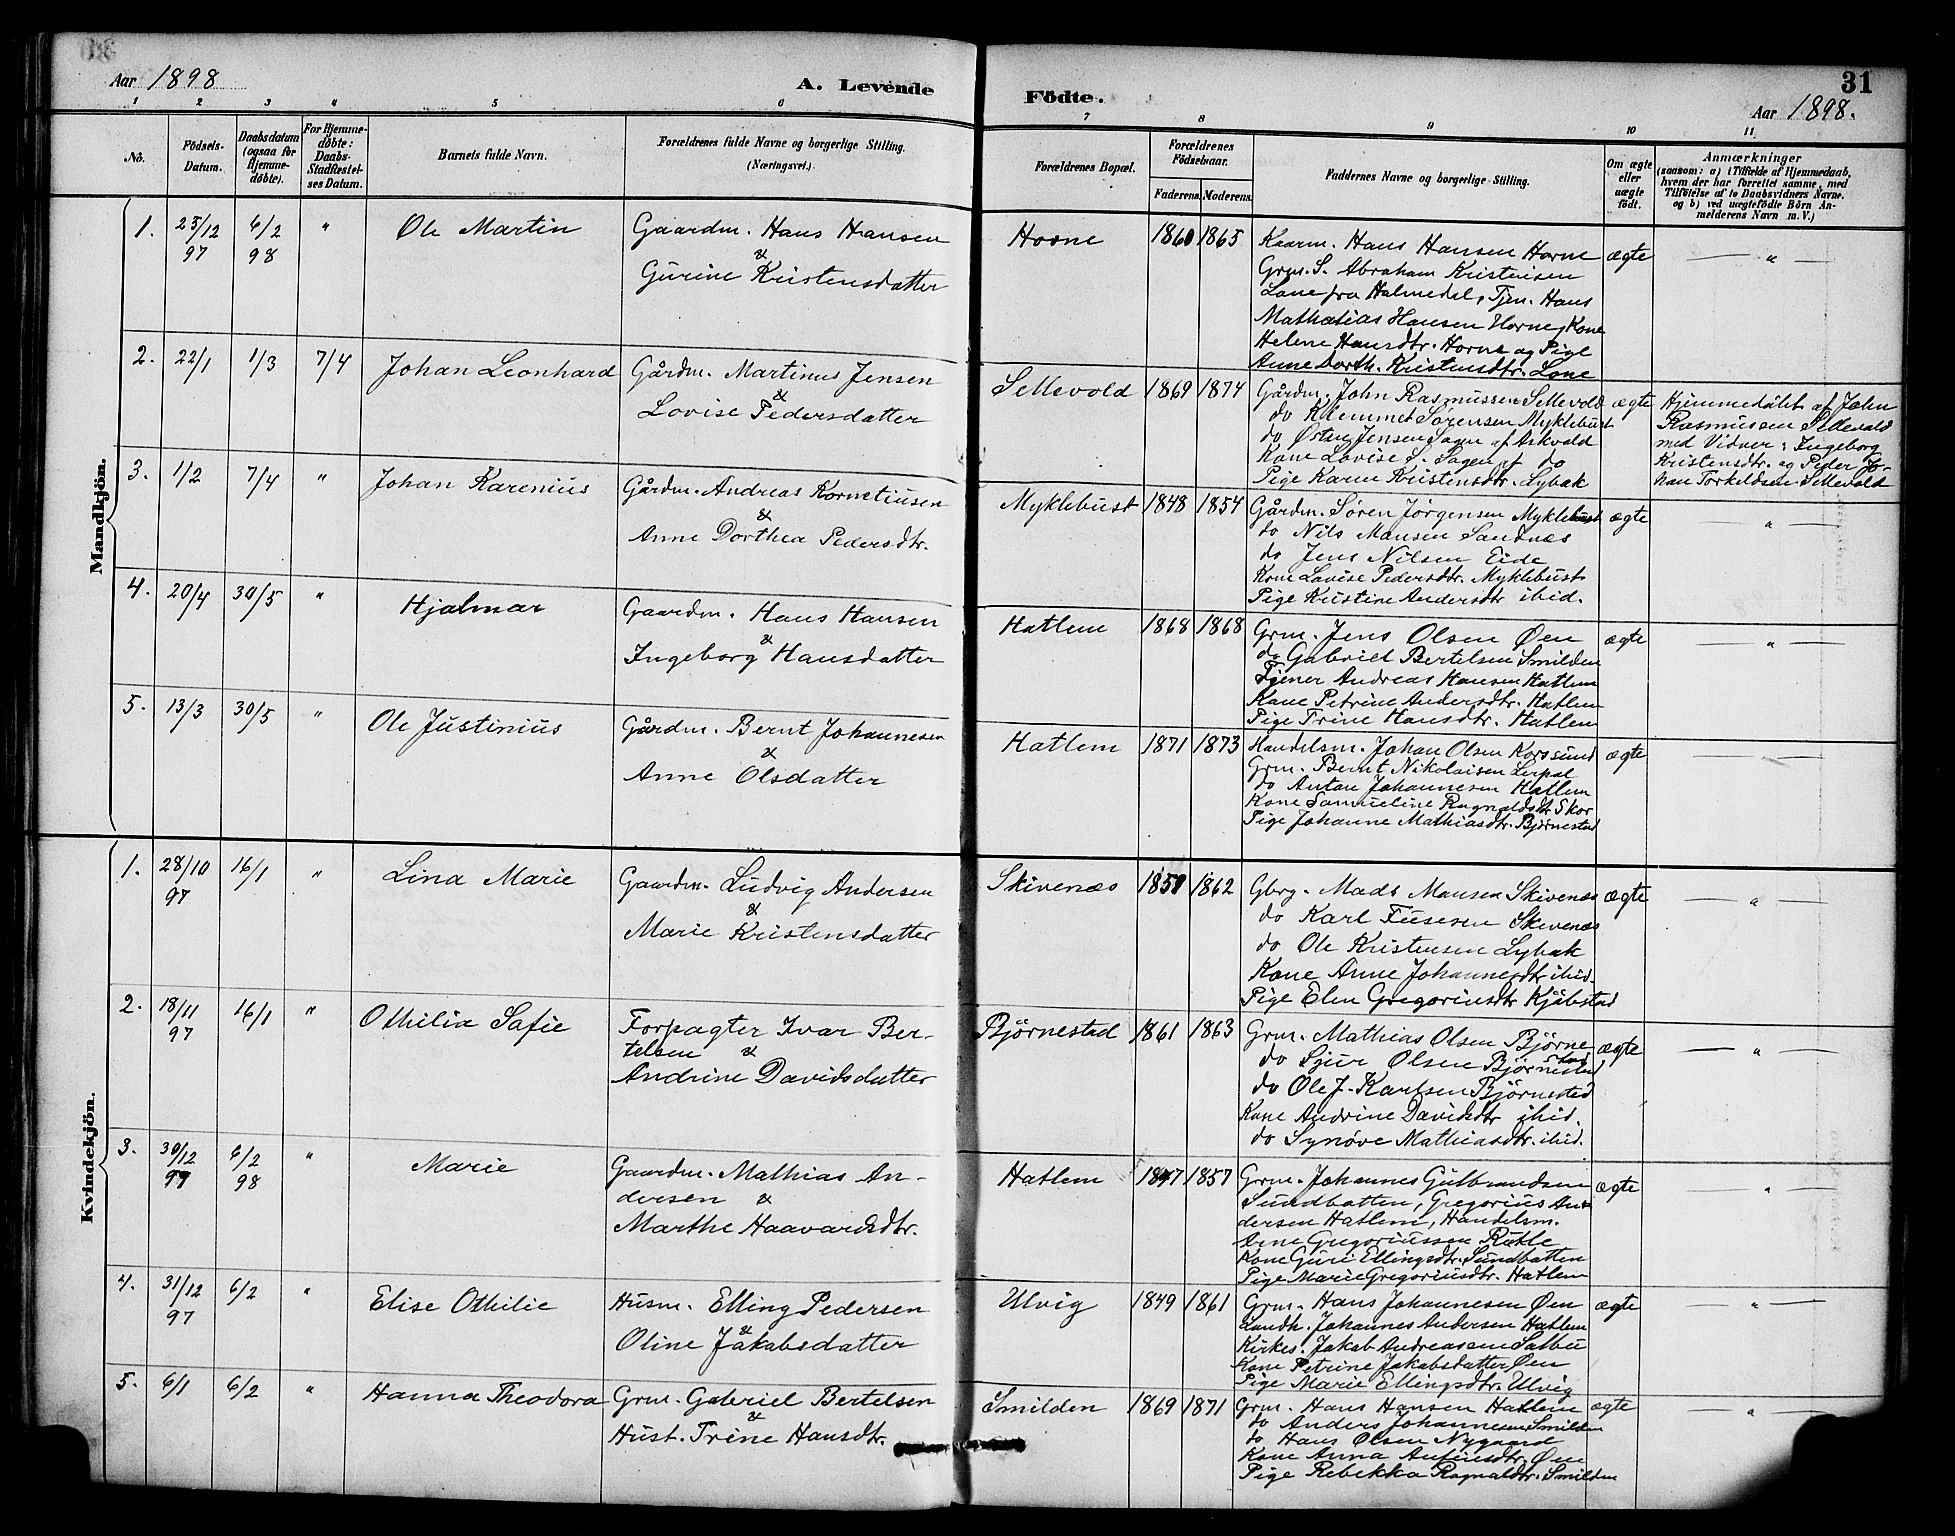 Aar 1898
A. Levende
Födte.
31
Aar 1898.
1 2 3 4 5 6 7 8 9 10 11
No.
Födsels-
Datum.
Daabsdatum
(ogsaa for
Hjemme-
döbte).
For Hjemme-
döbte:
Daabs-
Stadfæstel-
ses Datum.
Barnets fulde Navn.
Forældrenes fulde Navne og borgerlige Stilling.
(Næringsvei.)
Forældrenes Bopæl.
Forældrenes
Födselsaar.
Faderens. Moderens.
Faddernes Navne og borgerlige Stilling.
Om ægte
eller
uægte
födt.
Anmærkninger
(saasom: a) i Tilfælde af Hjemmedaab,
hvem der har forrettet samme, med
Tilföielse af to Daabsvidners Navne.
og b) ved uægtefödte Börn An-
melderens Navn m. V.)
Mandkjön.
1. 25/12 97 6/2 98 " Ole Martin
Gaardm. Hans Hansen
&
Gurine Kristensdatter
Horne 1860 1865
Kaarm. Hans Hansen Horne
Grm. S. Abraham Kristensen
Lone fra Holmedal, Tjen. Hans
Mathatias Hansen Horne, Kone
Helene Hansdtr. Horne og Pige
Anne Dorth. Kristensdtr. Lone
ægte — " —
2. 22/1 1/3 7/4 Johan Leonhard
Gårdm. Martinus Jensen
&
Lovise Pedersdatter
Sellevold 1869 1874
Gårdm. John Rasmussen Sellevold
do Klemmet Sørensen Myklebust
do Jensen Sagen af Askvold
Kone Lovise S. Sagen af do
Pige Karen Kristensdtr. Lybæk
ægte
Hjemmedøbt af John
Rasmussen Sellevold
med Vidner: Ingeborg
Kristensdtr. og Peder Jo-
han Torkildsen Sellevold
3. 1/2 7/4 " Johan Karenius
Gårdm. Andreas Korneliusen
&
Anne Dorthea Pedersdtr.
Myklebust 1848 1854
Gårdm. Søren Jørgensen Myklebust
do Nils Monsen Sandnæs
do Jens Nilsen Eide
Kone Lovise Pedersdtr. Myklebust
Pige Kristine Andersdtr ibid.
ægte — " —
4. 20/4 30/5 " Hjalmar
Gaardm. Hans Hansen
&
Ingeborg Hansdatter
Hatlem 1868 1868
Grm. Jens Olsen Øen
do Gabriel Bertelsen Smilden
Tjener Andreas Hansen Hatlem
Kone Petrine Andersdtr. Hatlem
Pige Trine Hansdtr. Hatlem
ægte — " —
5. 13/3 30/5 " Ole Justinius
Gårdm. Bernt Johannesen
&
Anne Olsdatter
Hatlem 1871 1873
Handelsm. Johan Olsen Korssund
Grm. Bernt Nikolaisen Lerpol
do Anton Johannesen Hatlem
Kone Samueline Ragnaldsdtr Skor
Pige Johanne Mathiasdtr. Bjørnestad
ægte
Kvindekjön.
1. 28/10 97 16/1 " Lina Marie
Gaardm. Ludvig Andersen
&
Marie Kristensdatter
Skivenæs 1862
Gbrg. Mads Monsen Skivenæs
do Karl Skivenæs
do Ole Kristensen Lybæk
Kone Anne Johannesdtr ibid.
Pige Elen Gregoriusdtr Kjøbstad
ægte — " —
2. 18/11 97 16/1 " Othilia Sofie
Forpagter Ivar Ber-
telsen &
Andrine Davidsdatter
Bjørnestad 1861 1863
Grm. Mathias Olsen Bjørne
stad
do Sjur Olsen Bjørnestad
do Ole J. Karlsen Bjørnestad
Kone Andrine Davidsdtr ibid.
do Synøve Mathiasdtr. ibid.
ægte — " —
3. 30/12 97 6/2 98 " Marie
Gaardm. Mathias An-
dersen &
Marthe Haavardsdtr.
Hatlem 1847 1857
Grm. Johannes Gulbrandsen
Sundbotten, Gregorius An-
dersen Hatlem, Handelsm.
Arne Gregoriussen Rutle
Kone Guri Ellingsdtr. Sundbotten
Pige Marie Gregoriusdtr. Hatlem
ægte — " —
4. 31/12 97 6/2 " Elise Othilie
Husm. Elling Pedersen
&
Oline Jakobsdatter
Ulvig 1849 1861
Grm. Hans Johannesen Øen
Landh. Johannes Andersen Hatlem
Kirkes. Jakob Andreassen Salbu
Kone Petrine Jakobsdatter Øen
Pige Marie Ellingsdtr. Ulvig
ægte — " —
5. 6/1 6/2 " Hanna Theodora
Grm. Gabriel Bertelsen
&
Hust. Trine Hansdtr.
Smilden 1869 1871
Grm. Hans Hansen Hatlem
do Anders Johannesen Smilden
do Hans Olsen Nygaard
Kone Anna Antonsdtr. Øen
Pige Rebekka Ragnaldsdtr. Smilden
ægte "